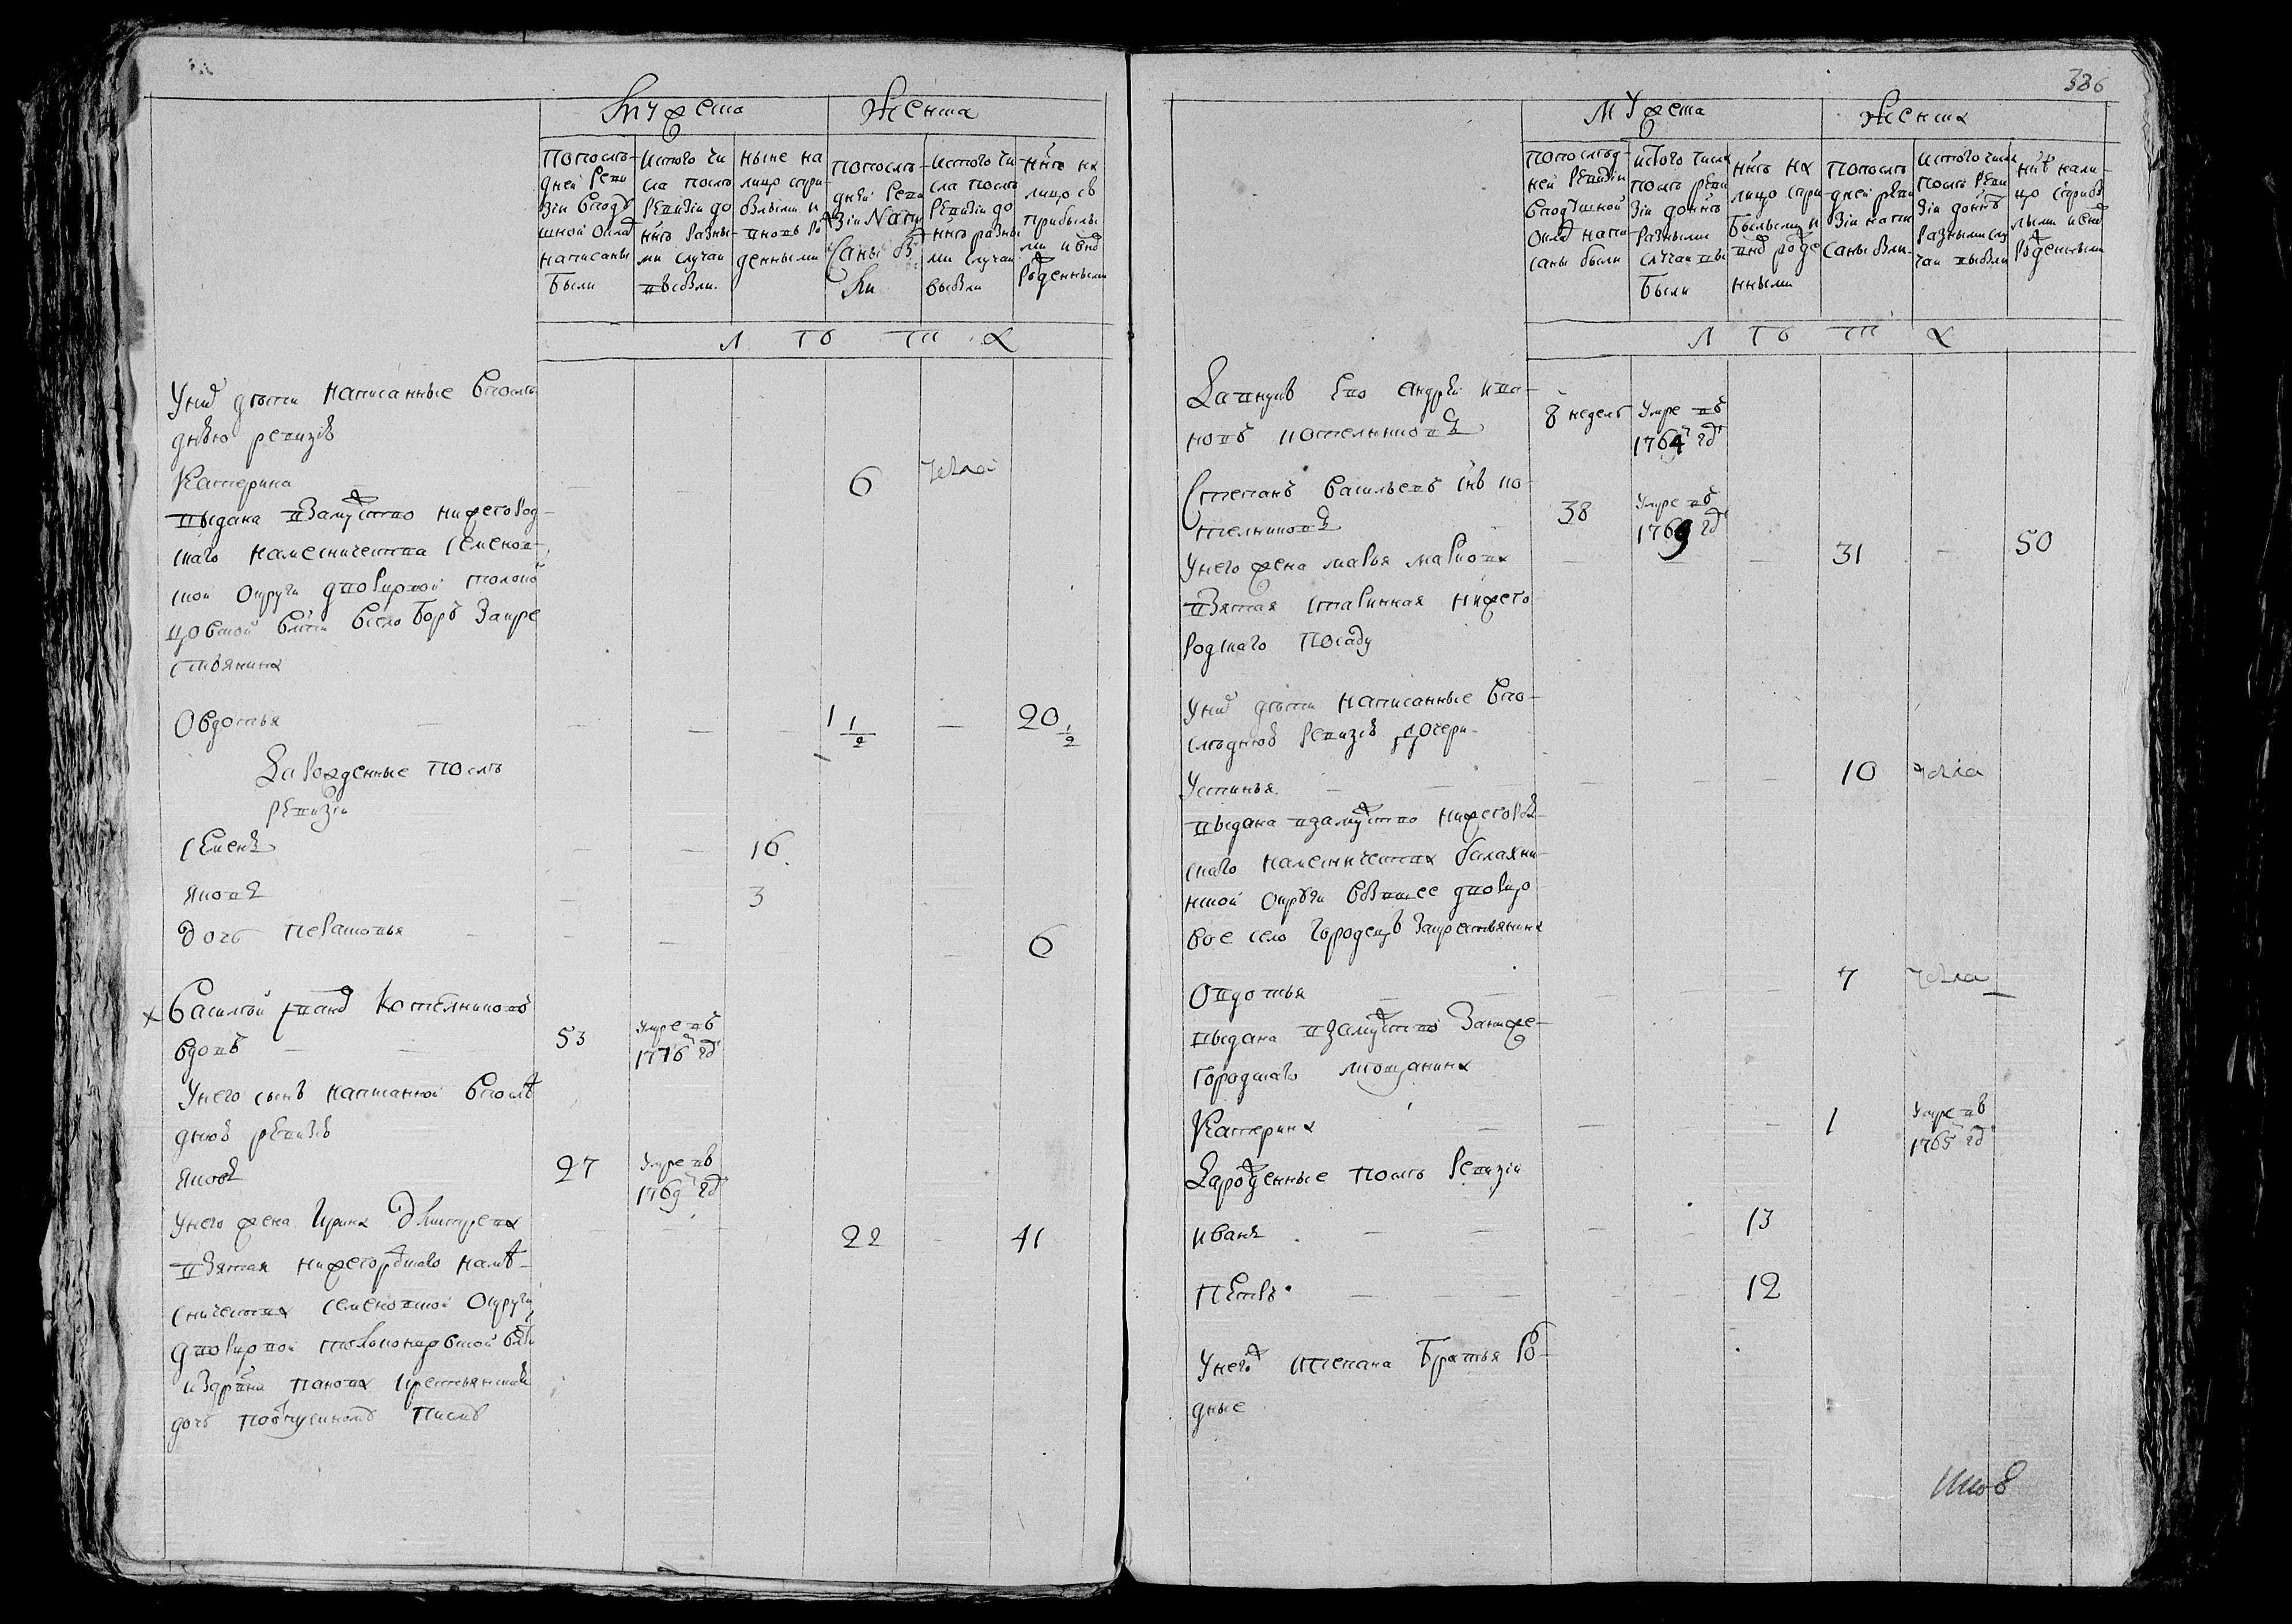 Мужеска Женска
Попослѣ-
дней Реви
зіи вподу
шной окла
написаны
были
Истого чи
сла послѣ
Ревизіи до
ннѣ Разны-
ми случаи
выбыли.
ныне на
лицо спри
былыми и
вновь Ро
жденными
попослѣ-
дней Реви
зіи Напи
саны бы
ли
истого чи
сла послѣ
Ревизіи до
ннѣ разны
ми случаи
выбыли
ннѣ на
лицо съ
прибылы
ми и внов
Рожденными
Л ѣ т а
Унихъ дѣти написанные впослѣ
днюю ревизію
Катерина 6
выдана взамужство нижегород-
скаго намесничества Семенов-
ской округи дворцовой толокон
цовской влсти в село Боръ за кре
стьянина
Овдотья 1 1/2 20 1/2
Зарожденные послѣ
ревизіи
Семенъ 16
Яковъ 3
дочь Парасковья 6
× Василей Иванов Котелниковъ
вдовъ 53 Умре въ
1776м годе
Унего сынъ написанной впослѣ
днюю ревизію
Яковъ 27 Умре въ
1769м годе
Унего жена Ирина Дмитрева 22 41
взятая нижегородского намѣ-
сничества семеновской округи
дворцовой толоконцовской влсти
издрвни панова крестьянская
дочь поотпускному писмѣ
386
Мужеска Женска
Попослѣд-
ней Ревизіи
вподушной
окла напи-
саны были
истого числа
послѣ реви
зіи доннѣ
разными
случаи вы
были
ннѣ на
лицо спри
былыми и
внов рожде
нными
попослѣ
дней реви
зіи напи
саны были.
истого числа
послѣ реви
зіи доннѣ
разными слу
чаи выбыли
ннѣ нали-
цо сприбы
лыми и внов
рожденными
Л ѣ т а
Запнукъ Ево Андрей Ива-
новъ Котелниковъ 8 недель Умре въ
1764м годе
Степанъ Васильевъ снъ Ко-
телниковъ 38 Умре въ
1769 годе
Унего жена Марья Маркова 31 50
взятая старинная нижего
родскаго посаду
Унихъ дѣти написанные впо-
слѣднюю ревизію дочери
Устинья 10
выдана взамужство нижегород-
скаго намесничества балахни-
нской округи вбывшее дворцо
вое село Городецъ закрестьянина
Овдотья 7
выдана взамужство занижe-
городскаго мѣщанина
Катерина 1 Умре въ
1765м годе
Зарожденные послѣ ревизіи
Иванъ 13
Петръ 12
Унегожъ Степана братья ро-
дные